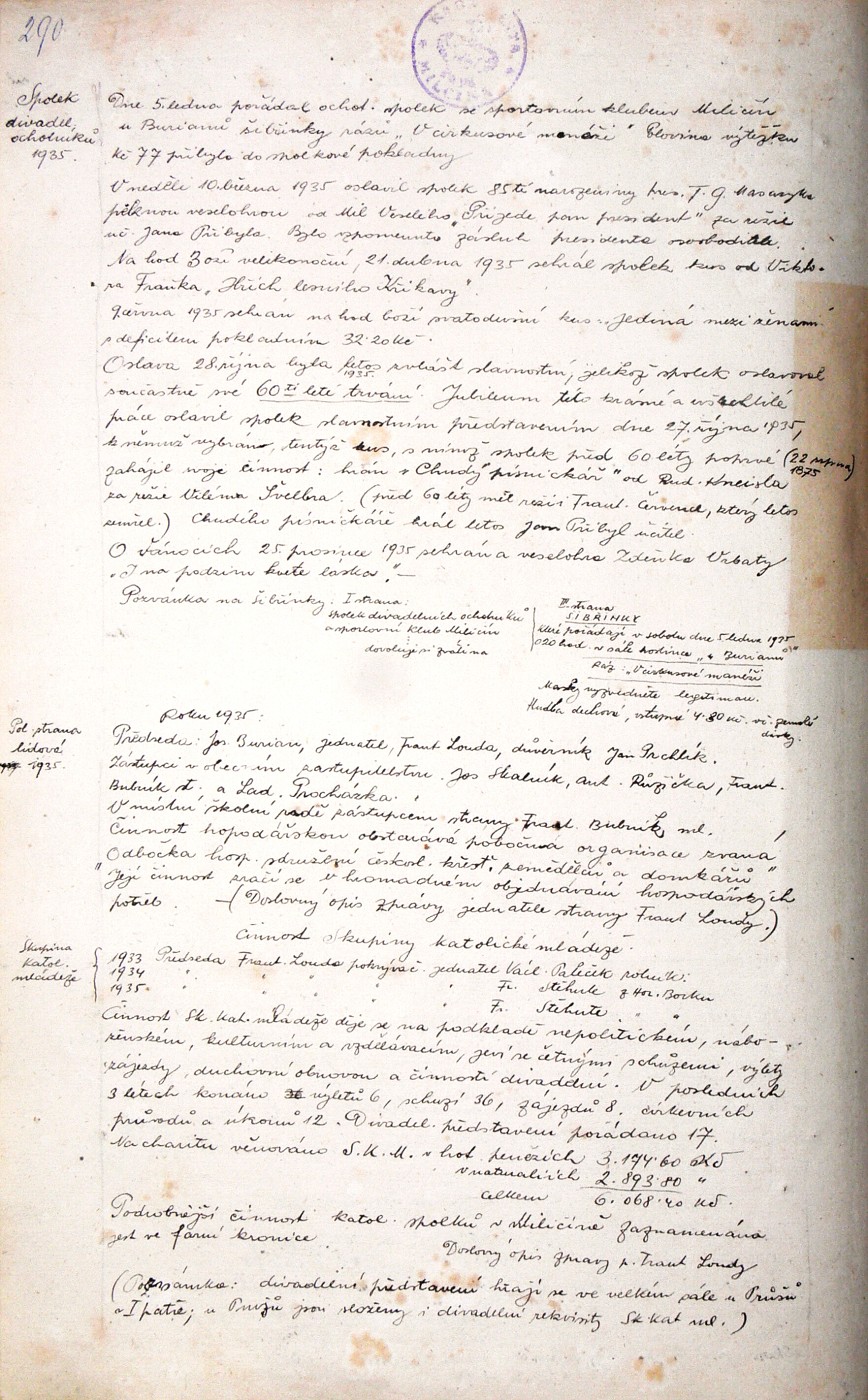 290
Spolek
divadel.
ochotníků
1935.
Dne 5. ledna pořádal ochot. spolek se sportovním klubem Miličín
u Burianů šibřinky rázu „V cirkusové manéži“ Polovina výtěžku
Kč 77 přibylo do spolkové pokladny
V neděli 10. března 1935 oslavil spolek 85 té narozeniny pres. T. G. Masaryka
pěknou veselohrou od Mil Veselého „Přijede pan president“ za režie
uč. Jana Přibyla. Bylo vzpomenuto zásluh presidenta osvoboditele.
Na hod Boží velikonoční, 21. dubna 1935 sehrál spolek kus od Vikto-
ra Fraňka „Hřích lesního Křikavy“.
9. června 1935 sehrán na hod boží svatodušní kus: „Jediná mezi ženami“
s deficitem pokladním 32·20 Kč.
Oslava 28. října byla letos 1935. zvlášť slavnostní, jelikož spolek oslavoval
součastně své 60 ti leté trvání. Jubileum této krásné a ušlechtilé
práce oslavil spolek slavnostním představením dne 27. října 1935,
k němuž vybrán, tentýž kus, s nímž spolek před 60 léty poprvé (22 srpna) 1875
zahájil svoje činnost: hrán „Chudý písničkář“ od Rud. Kneisla
za režie Viléma Švelbra. (před 60 léty měl režii Frant. Červenel, který letos
zemřel.) Chudého písničkáře hrál letos Jan Přibyl učitel.
O vánocích 25. prosince 1935 sehrána veselohra Zdeňka Vrbaty
„I na podzim kvete láska“.—
Pozvánka na šibřinky: I strana:
spolek divadelních ochotníků
a sportovní klub Miličín
dovolují si zváti na
II. strana
ŠIBŘINKY
které pořádají v sobotu dne 5. ledna 1935
o 20 hod. v sále hostince „u Burianů“
ráz: „V cirkusové manéži
Masky vyzvedněte legitimaci.
Hudba dechová, vstupné 4·80 Kč. vč. zemské
dávky.
Pol. strana
lidová
1935.
Roku 1935:
Předseda: Jos. Burian, jednatel, Frant Louda, důvěrník Jan Prchlík.
Zástupci v obecním zastupitelstvu. Jos Skalník, ant. Růžička, Frant.
Bubník st. a Lad. Procházka.
V místní školní radě zástupcem strany Frant. Bubník ml.
Činnost hopodářskou obstarává pobočná organisace zvaná
„Odbočka hosp. sdružení českosl. křesť. zemědělců a domkářů“
Její činnost zračí se v hromadném objednávání hospodářských
potřeb. —(Doslovný opis zprávy jednatele strany Frant Loudy.)
Činnost Skupiny katolické mládeže.
Skupina
katol.
mládeže
1933 Předseda Frant. Louda pokrývač. jednatel Václ. Paleček rolník.
1934 " " " " Fr. Stehule z Hor. Borku
1935. " " " " Fr. Stehule " "
Činnost Sk. kat. mládeže děje se na podkladě nepolitickém, nábo-
ženském, kulturním a vzdělávacím, jeví se četnými schůzemi, výlety
zájezdy, duchovní obnovou a činností divadelní. V posledních
3 letech konáno výletů 6, schuzí 36, zájezdů 8. církevních
průvodů a úkonů 12. Divadel. představení pořádáno 17.
Na charitu věnováno S. K. M. v hot. penězích 3.174·60 Kč
v naturaliích 2.893·80 "
Celkem 6.068·40 Kč.
Podrobnější činnost katol. spolků v Miličíně zaznamenána
jest ve farní kronice.
Doslovný opis zprávy p. Frant Loudy
(Poznámka: divadelní představení hrají se ve velkém sále u Průšů
v I patře; u Průšů jsou složeny i divadelní rekvisity Sk kat ml.)